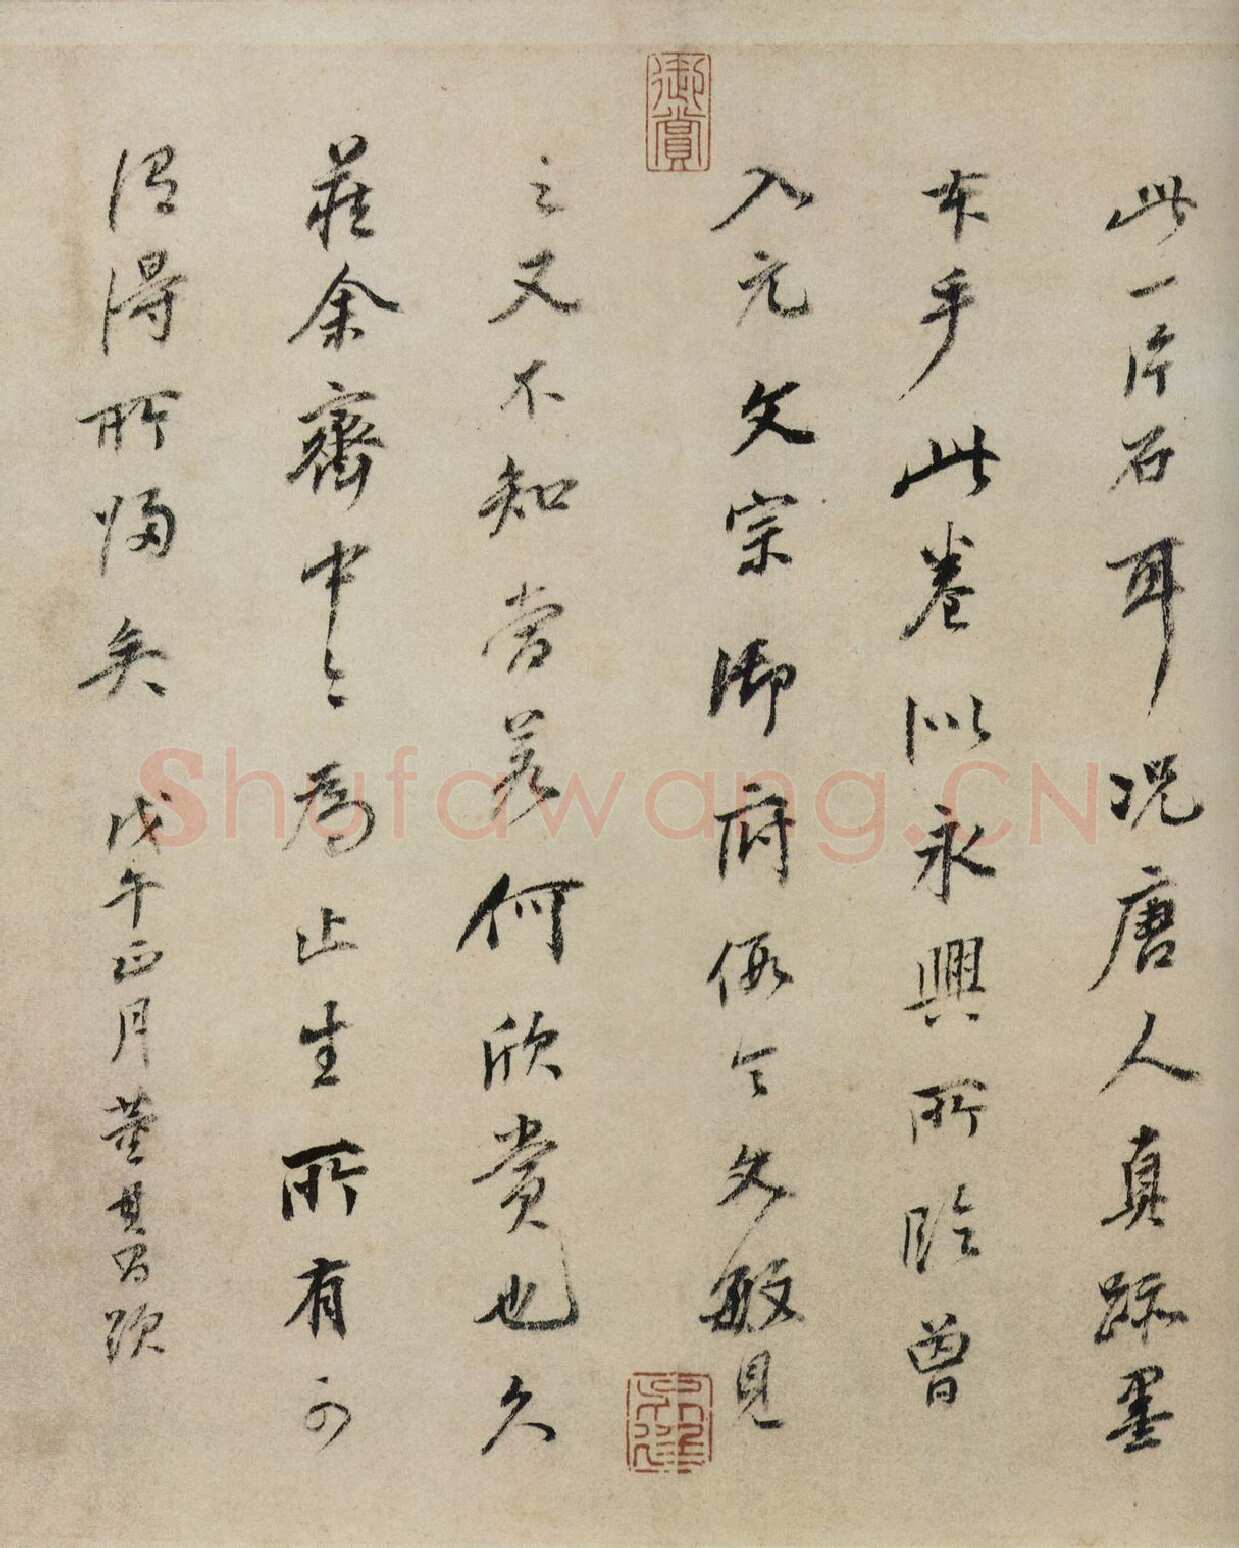 此一片石耳况唐人真跡墨
本乎此卷似永興所臨曾
入元文宗御府假令文敏見
之又不知當若何欣賞也久
藏余齋中今為止生所有可
謂得所歸矣 戊午正月董其昌跋
御賞
Shufawang.CN